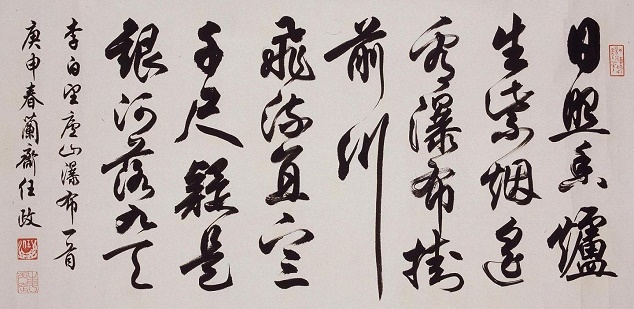 日照香爐
生紫烟遙
看瀑布掛
前川
飛流直下三
千尺疑是
銀河落九天
李白望廬山瀑布一首
庚申春蘭齋任政